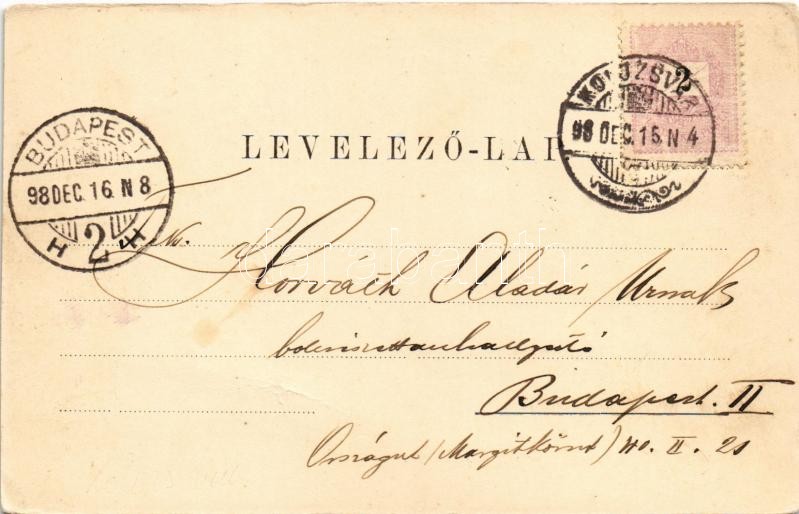 2
KOLOZSVÁR
98 DEC. 15. N 4
LEVELEZŐ-LAP.
BUDAPEST
98 DEC. 16. N 8
H 2 H
Horváth Aladár Urnak
bölcsészettanhallgató
Budapest. II
Országut (Margitkörut) 40. II. 21
darabanth